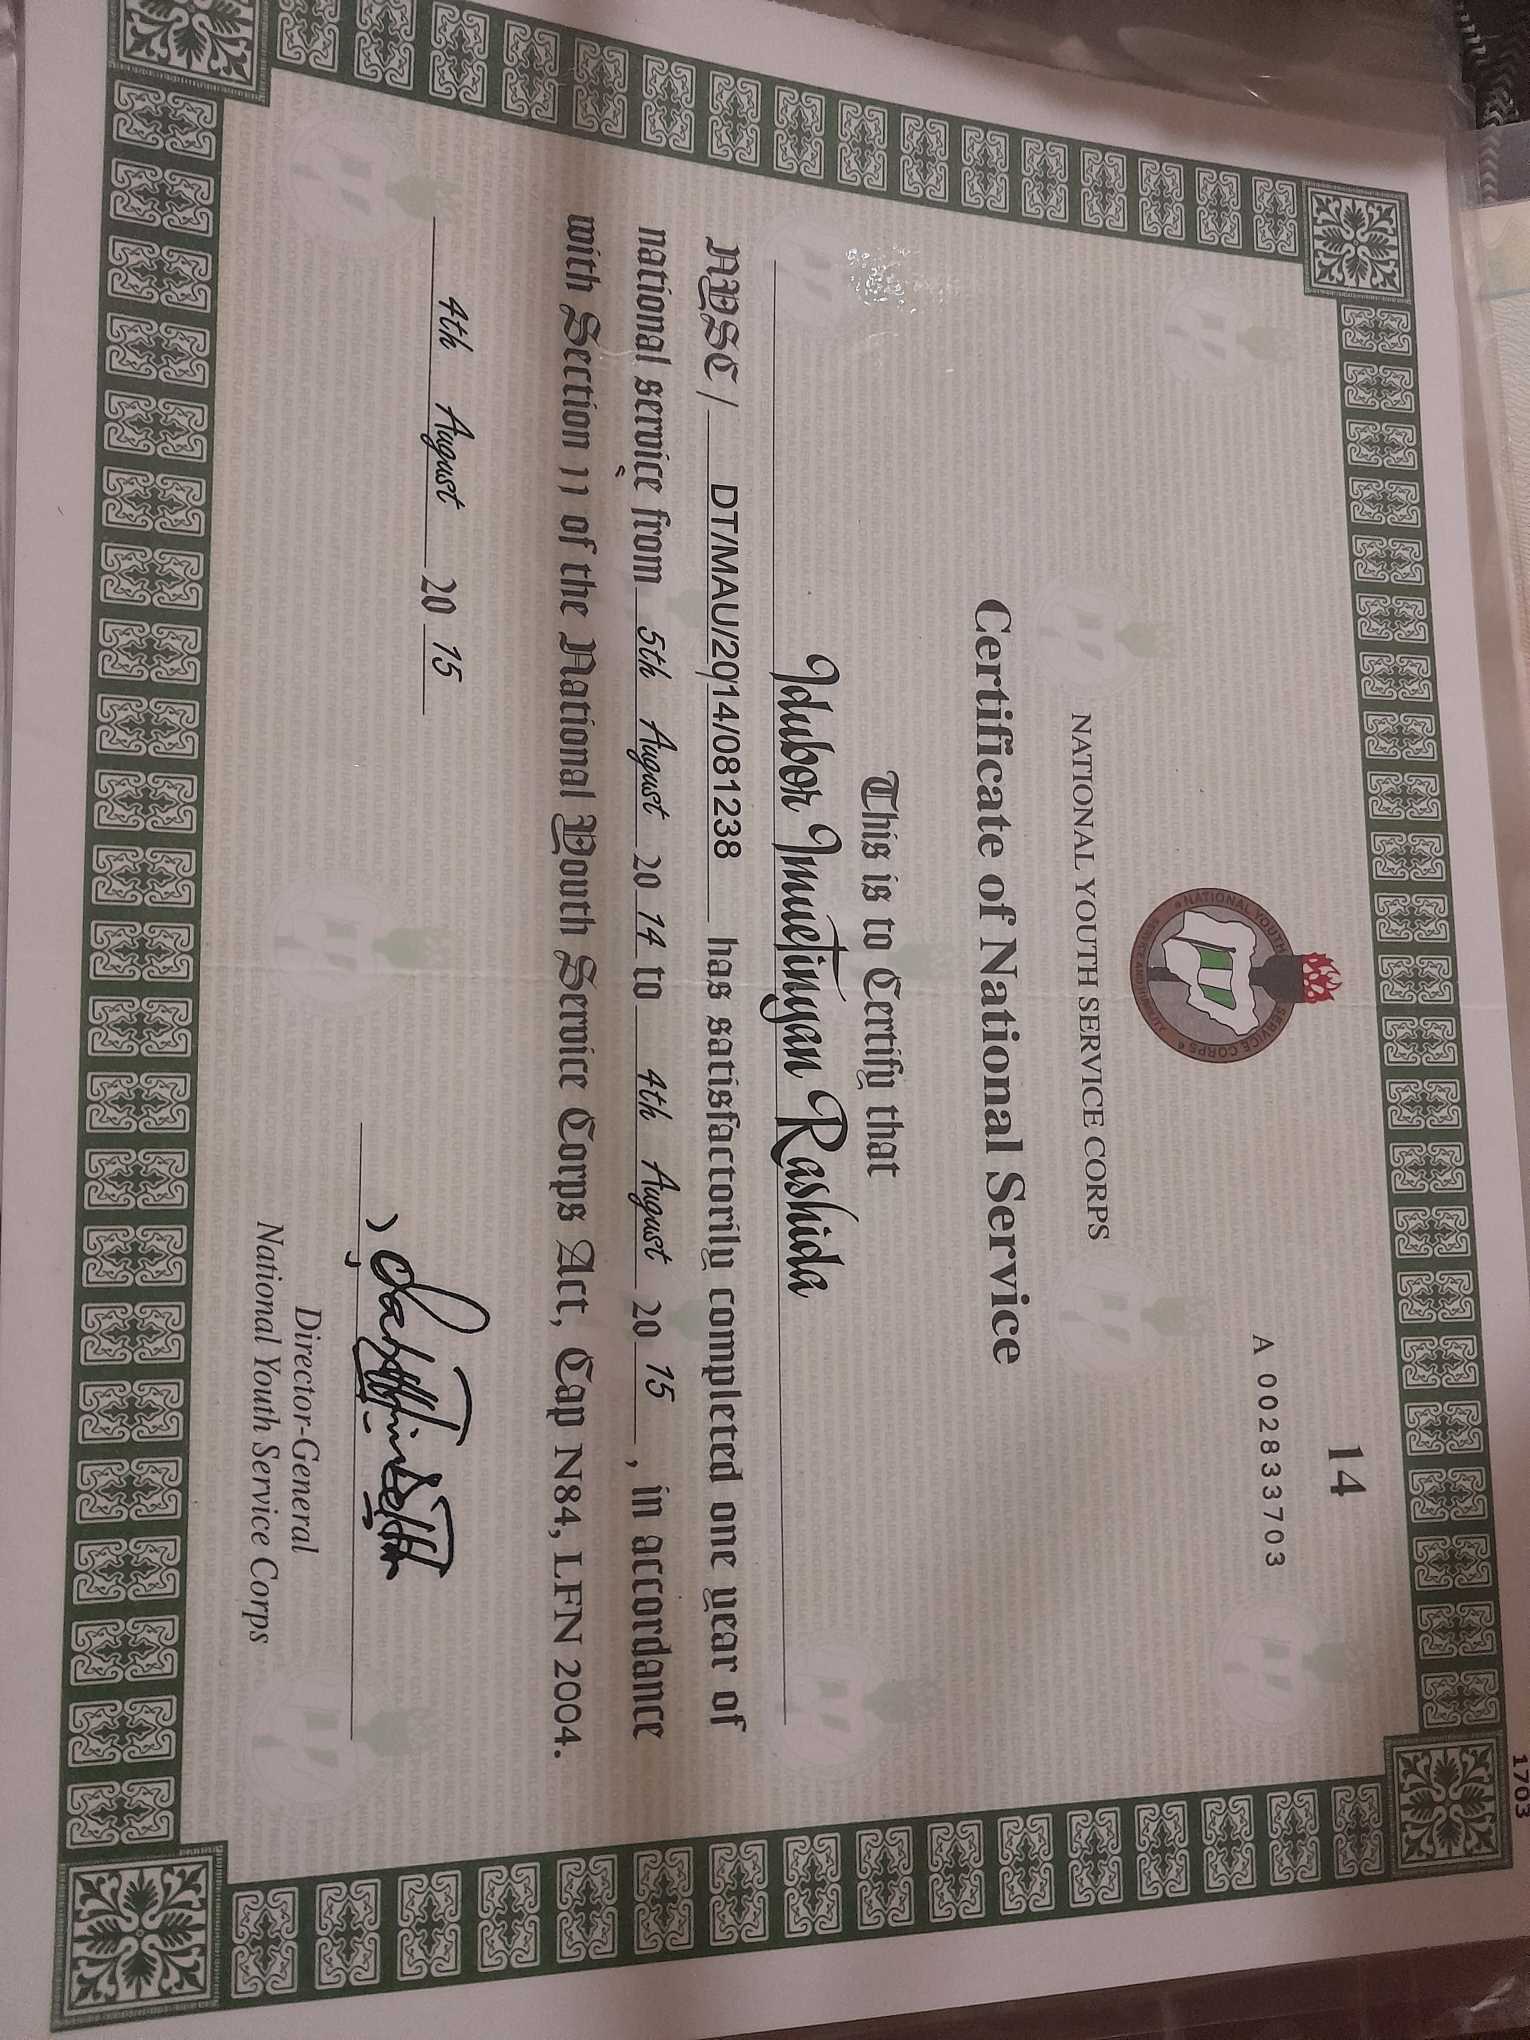 1703
14
A 002833703
NATIONAL YOUTH SERVICE CORPS
NATIONAL YOUTH SERVICE CORPS
Certificate of National Service
This is to Certify that
Idubor Imuetinyan Rashida
NYSC / DT/MAU/2014/081238 has satisfactorily completed one year of
national service from 5th August 20 14 to 4th August 20 15, in accordance
with Section 11 of the National Youth Service Corps Act, Cap N84, LFN 2004.
4th August 20 15
Director-General
National Youth Service Corps